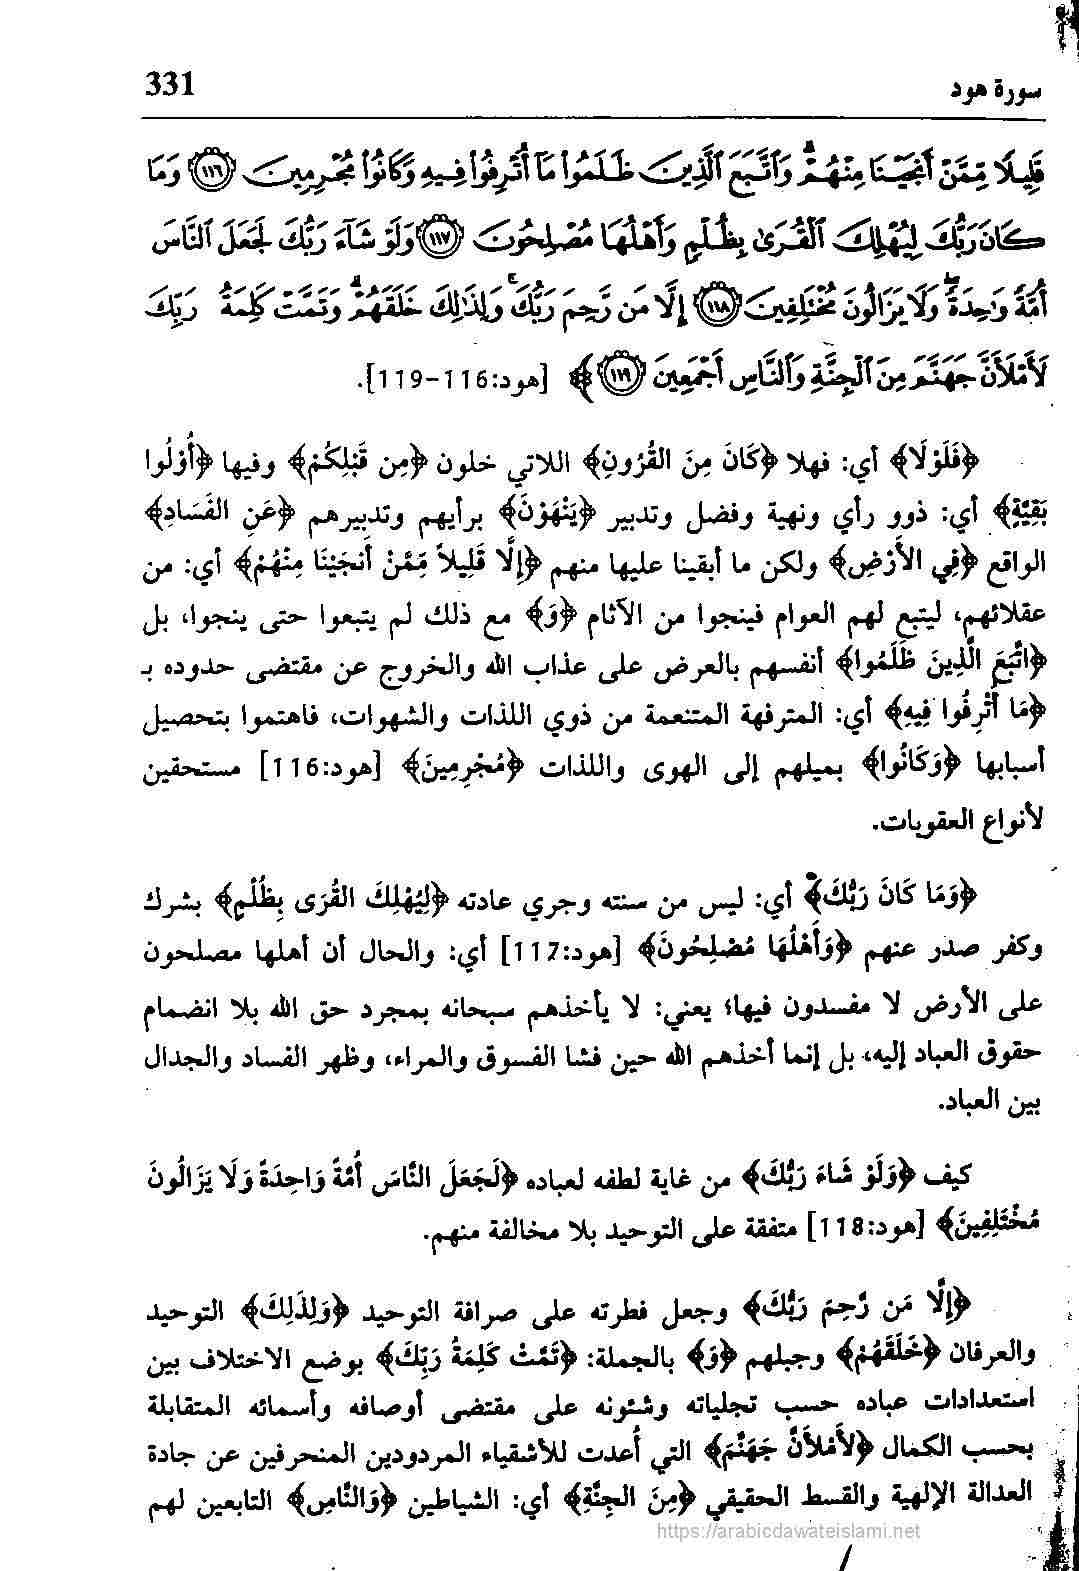 سورة هود
331
قَلِيلًا مِّمَّنْ أَنجَيْنَا مِنْهُمْ ۗ وَٱتَّبَعَ ٱلَّذِينَ ظَلَمُوا۟ مَآ أُتْرِفُوا۟ فِيهِ وَكَانُوا۟ مُجْرِمِينَ ﴿١١٦﴾ وَمَا
كَانَ رَبُّكَ لِيُهْلِكَ ٱلْقُرَىٰ بِظُلْمٍ وَأَهْلُهَا مُصْلِحُونَ ﴿١١٧﴾ وَلَوْ شَآءَ رَبُّكَ لَجَعَلَ ٱلنَّاسَ
أُمَّةً وَٰحِدَةً ۖ وَلَا يَزَالُونَ مُخْتَلِفِينَ ﴿١١٨﴾ إِلَّا مَن رَّحِمَ رَبُّكَ ۚ وَلِذَٰلِكَ خَلَقَهُمْ ۗ وَتَمَّتْ كَلِمَةُ رَبِّكَ
لَأَمْلَأَنَّ جَهَنَّمَ مِنَ ٱلْجِنَّةِ وَٱلنَّاسِ أَجْمَعِينَ ﴿١١٩﴾﴾ [هود:116-119].
﴿فَلَوْلَا﴾ أي: فهلا ﴿كَانَ مِنَ القُرُونِ﴾ اللاتي خلون ﴿مِن قَبْلِكُمْ﴾ وفيها ﴿أُوْلُوا
بَقِيَّةٍ﴾ أي: ذوو رأي ونهية وفضل وتدبير ﴿يَنْهَوْنَ﴾ برأيهم وتدبيرهم ﴿عَنِ الفَسَادِ﴾
الواقع ﴿فِي الأَرْضِ﴾ ولكن ما أبقينا عليها منهم ﴿إِلَّا قَلِيلاً مِّمَّنْ أَنجَيْنَا مِنْهُمْ﴾ أي: من
عقلائهم، ليتبع لهم العوام فينجوا من الآثام ﴿وَ﴾ مع ذلك لم يتبعوا حتى ينجوا، بل
﴿اتَّبَعَ الَّذِينَ ظَلَمُوا﴾ أنفسهم بالعرض على عذاب الله والخروج عن مقتضى حدوده بـ
﴿مَا أُتْرِفُوا فِيهِ﴾ أي: المترفهة المتنعمة من ذوي اللذات والشهوات، فاهتموا بتحصيل
أسبابها ﴿وَكَانُوا﴾ بميلهم إلى الهوى واللذات ﴿مُجْرِمِينَ﴾ [هود:116] مستحقين
لأنواع العقوبات.
﴿وَمَا كَانَ رَبُّكَ﴾ أي: ليس من سنته وجري عادته ﴿لِيُهْلِكَ القُرَى بِظُلْمٍ﴾ بشرك
وكفر صدر عنهم ﴿وَأَهْلُهَا مُصْلِحُونَ﴾ [هود:117] أي: والحال أن أهلها مصلحون
على الأرض لا مفسدون فيها؛ يعني: لا يأخذهم سبحانه بمجرد حق الله بلا انضمام
حقوق العباد إليه، بل إنما أخذهم الله حين فشا الفسوق والمراء، وظهر الفساد والجدال
بين العباد.
كيف ﴿وَلَوْ شَاءَ رَبُّكَ﴾ من غاية لطفه لعباده ﴿لَجَعَلَ النَّاسَ أُمَّةً وَاحِدَةً وَلَا يَزَالُونَ
مُخْتَلِفِينَ﴾ [هود:118] متفقة على التوحيد بلا مخالفة منهم.
﴿إِلَّا مَن رَّحِمَ رَبُّكَ﴾ وجعل فطرته على صرافة التوحيد ﴿وَلِذَلِكَ﴾ التوحيد
والعرفان ﴿خَلَقَهُمْ﴾ وجبلهم ﴿وَ﴾ بالجملة: ﴿تَمَّتْ كَلِمَةُ رَبِّكَ﴾ بوضع الاختلاف بين
استعدادات عباده حسب تجلياته وشئونه على مقتضى أوصافه وأسمائه المتقابلة
بحسب الكمال ﴿لأَمْلأَنَّ جَهَنَّمَ﴾ التي أُعدت للأشقياء المردودين المنحرفين عن جادة
العدالة الإلهية والقسط الحقيقي ﴿مِنَ الجِنَّةِ﴾ أي: الشياطين ﴿وَالنَّاسِ﴾ التابعين لهم
https://arabicdawateislami.net